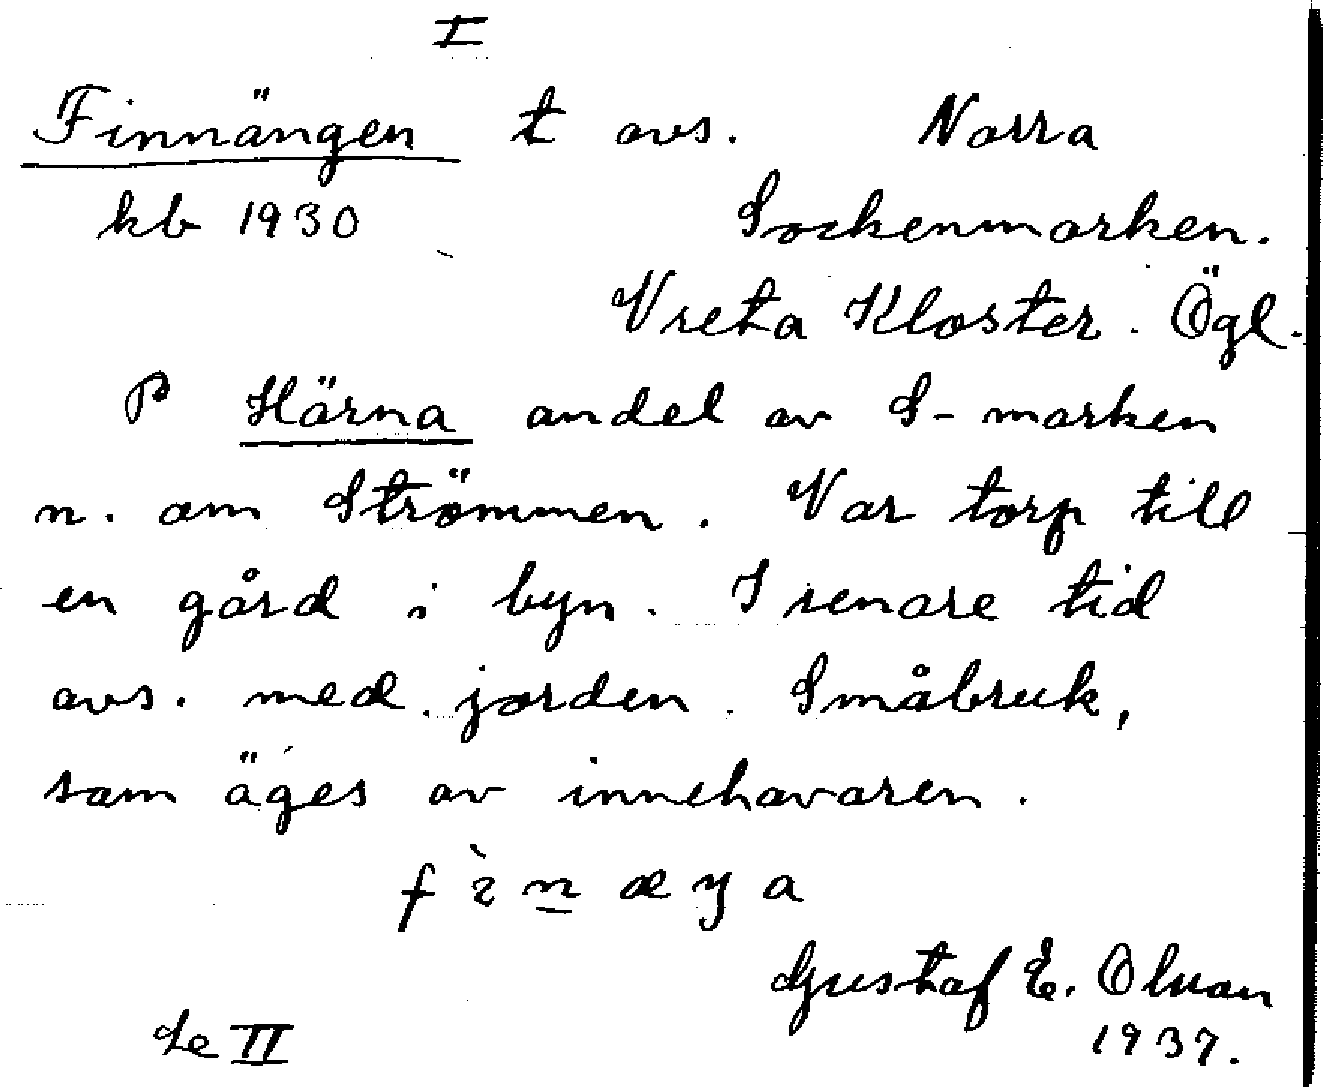 I
Finnängen t avs. Norra
kb 1930 Sockenmarken.
Vreta Kloster. Ögl.
P Härna andel av S-marken
n. om Strömmen. Var torp till
en gård i byn. I senare tid
avs. med jorden. Småbruk,
som äges av innehavaren.
Gustaf E. Olsson
Se II 1937.